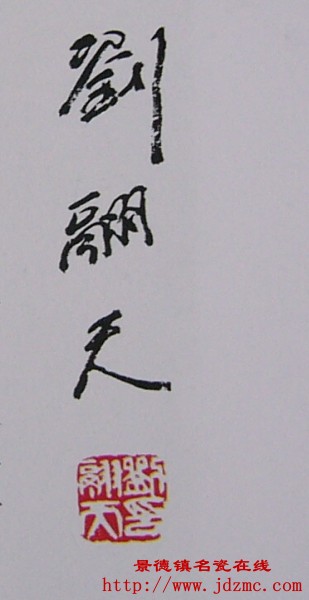 劉
翮
天
劉印
翮天
景德镇名瓷在线
http://www.jdzmc.com